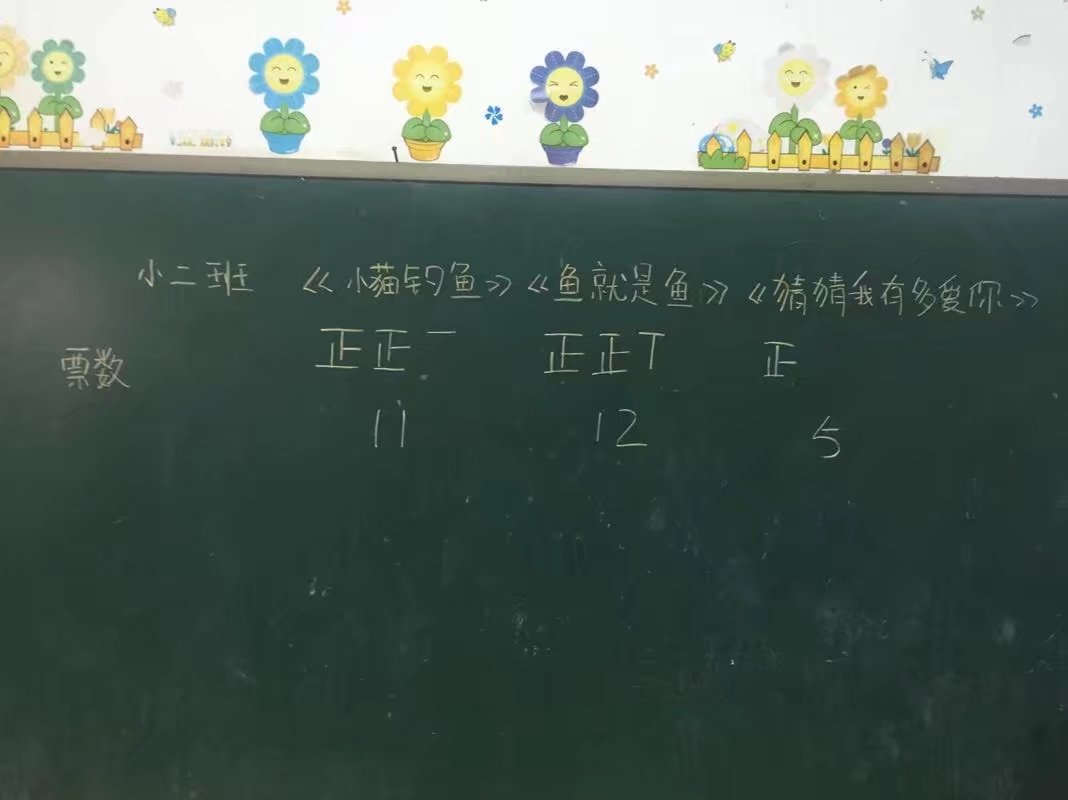 小二班 《小猫钓鱼》《鱼就是鱼》《猜猜我有多爱你》
票数 正正一 正正丅 正
11 12 5